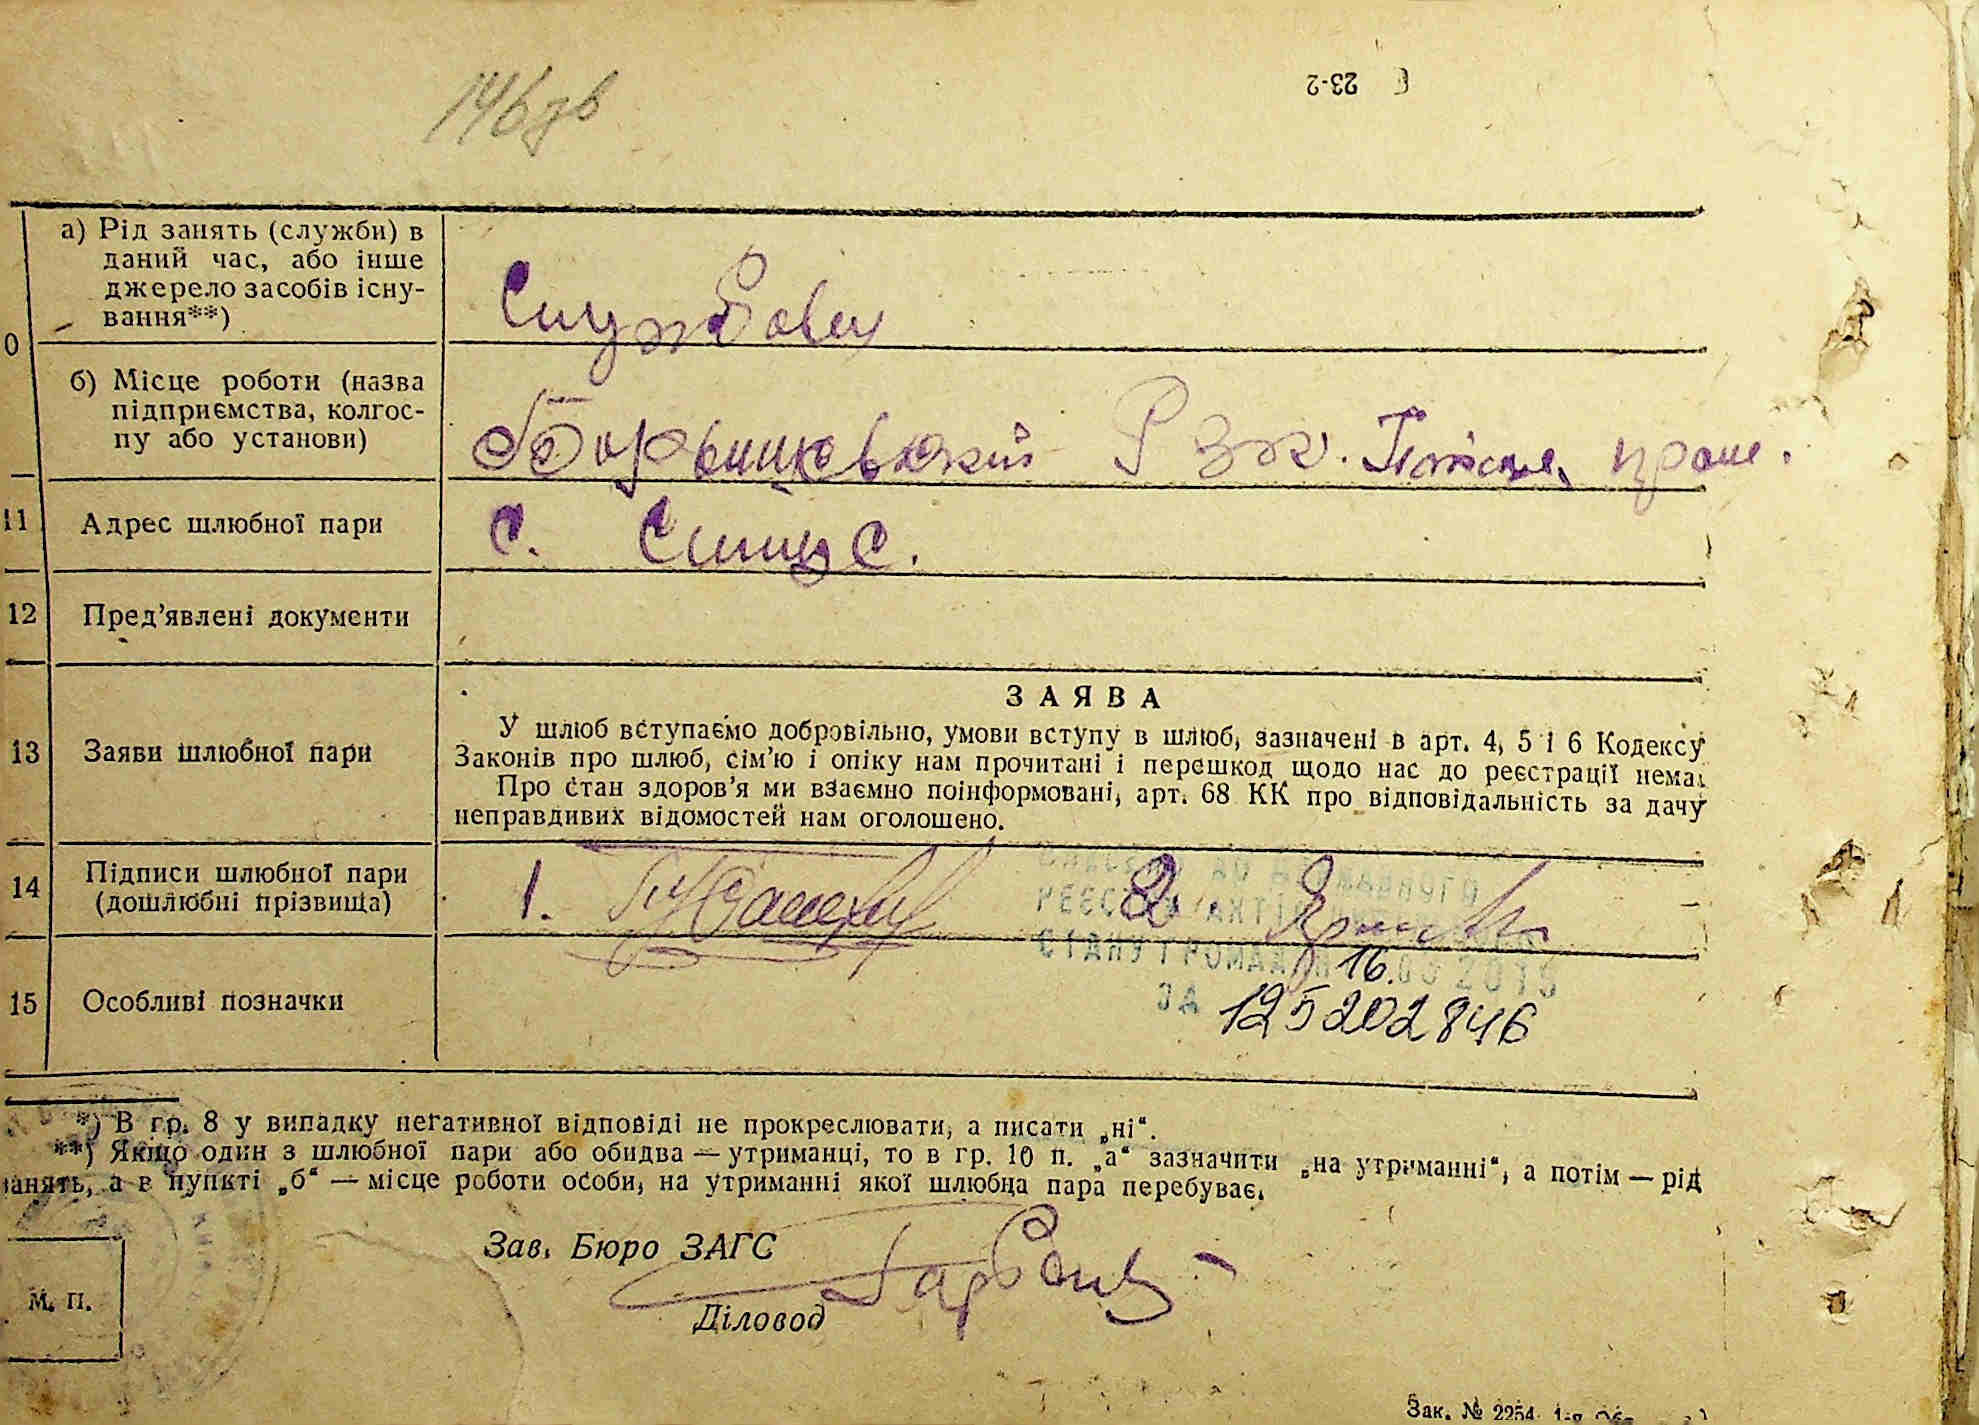 146 зв
23-2
а) Рід занять (служби) в
даний час, або інше
джерело засобів існу-
вання**)
Службовец
б) Місце роботи (назва
підприємства, колгос-
пу або установи)
11 Адрес шлюбної пари
с.
12 Пред'явлені документи
13 Заяви шлюбної пари
ЗАЯВА
У шлюб вступаємо добровільно, умови вступу в шлюб, зазначені в арт. 4, 5 і 6 Кодексу
Законів про шлюб, сім'ю і опіку нам прочитані і перешкод щодо нас до реєстрації нема.
Про стан здоров'я ми взаємно поінформовані, арт. 68 КК про відповідальність за дачу
неправдивих відомостей нам оголошено.
14 Підписи шлюбної пари
(дошлюбні прізвища)
1. 2.
до Державного
СТАНУ ГРОМАДЯН 16.
ЗА 125202846
15 Особливі позначки
*) В гр. 8 у випадку негативної відповіді не прокреслювати, а писати „ні“.
**) Якщо один з шлюбної пари або обидва — утриманці, то в гр. 10 п. „а“ зазначити „на утриманні“, а потім — рід
занять, а в пункті „б“ — місце роботи особи, на утриманні якої шлюбна пара перебуває.
Зав. Бюро ЗАГС
Діловод
М. П.
Зак. № 2254